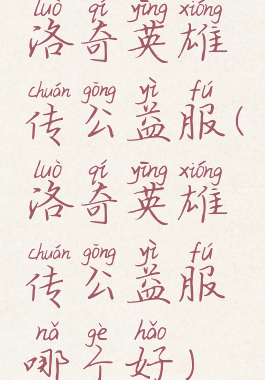 luò qí yīng xióng
洛奇英雄
chuán gōng yì fú
传公益服(
luò qí yīng xióng
洛奇英雄
chuán gōng yì fú
传公益服
nǎ gè hǎo
哪个好)